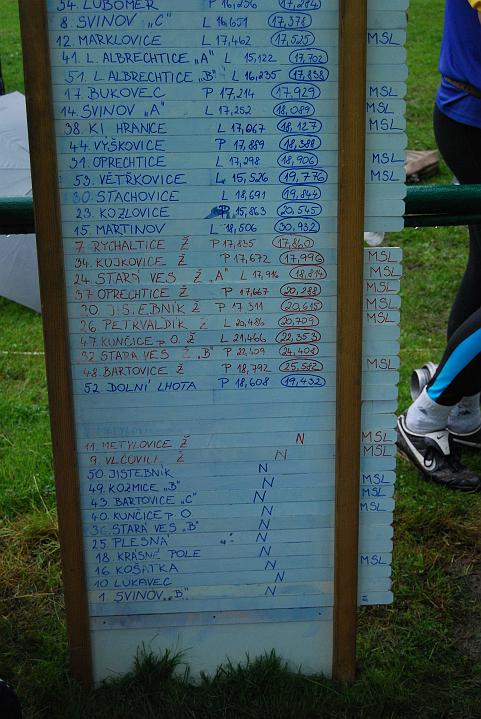 54. LUBOMĚŘ P 16,256 17,284
8. SVINOV „C" L 16,651 17,378
12. MARKLOVICE L 17,462 17,525 MSL
41. L. ALBRECHTICE „A" L 15,122 17,702
51. L. ALBRECHTICE „B" L 16,235 17,838
17. BUKOVEC P 17,214 17,929 MSL
14. SVINOV „A" L 17,252 18,089 MSL
38. KL. HRANICE L 17,067 18,127 MSL
44. VÝŠKOVICE P 17,889 18,388
31. OPRECHTICE L 17,298 18,906 MSL
53. VĚTŘKOVICE L 15,526 19,776 MSL
30. STACHOVICE L 18,691 19,844
23. KOZLOVICE 15,863 20,545
15. MARTINOV L 18,506 30,932
7. RYCHALTICE Ž P 17,835 17,860
34. KUJKOVICE Ž P 17,672 17,996 MSL
24. STARÁ VES Ž „A" L 17,916 18,814 MSL
37. OPRECHTICE Ž P 17,667 20,288 MSL
20. JISTEBNÍK Ž P 17,311 20,615 MSL
26. PETŘVALDÍK Ž L 20,486 20,709 MSL
47. KUNČICE p. O. Ž L 21,466 22,353
32. STARÁ VES Ž „B" P 22,409 24,408
48. BARTOVICE Ž P 18,792 25,582 MSL
52. DOLNÍ LHOTA P 18,608 19,432
11. METYLOVICE Ž N MSL
9. VLČOVICE Ž N MSL
50. JISTEBNÍK N
49. KOZMICE „B" N MSL
43. BARTOVICE „C" N MSL
40. KUNČICE p. O N MSL
36. STARÁ VES „B" N
25. PLESNÁ N
18. KRÁSNÉ POLE N
16. KOŠATKA N MSL
10. LUKAVEC N
1. SVINOV „B" N